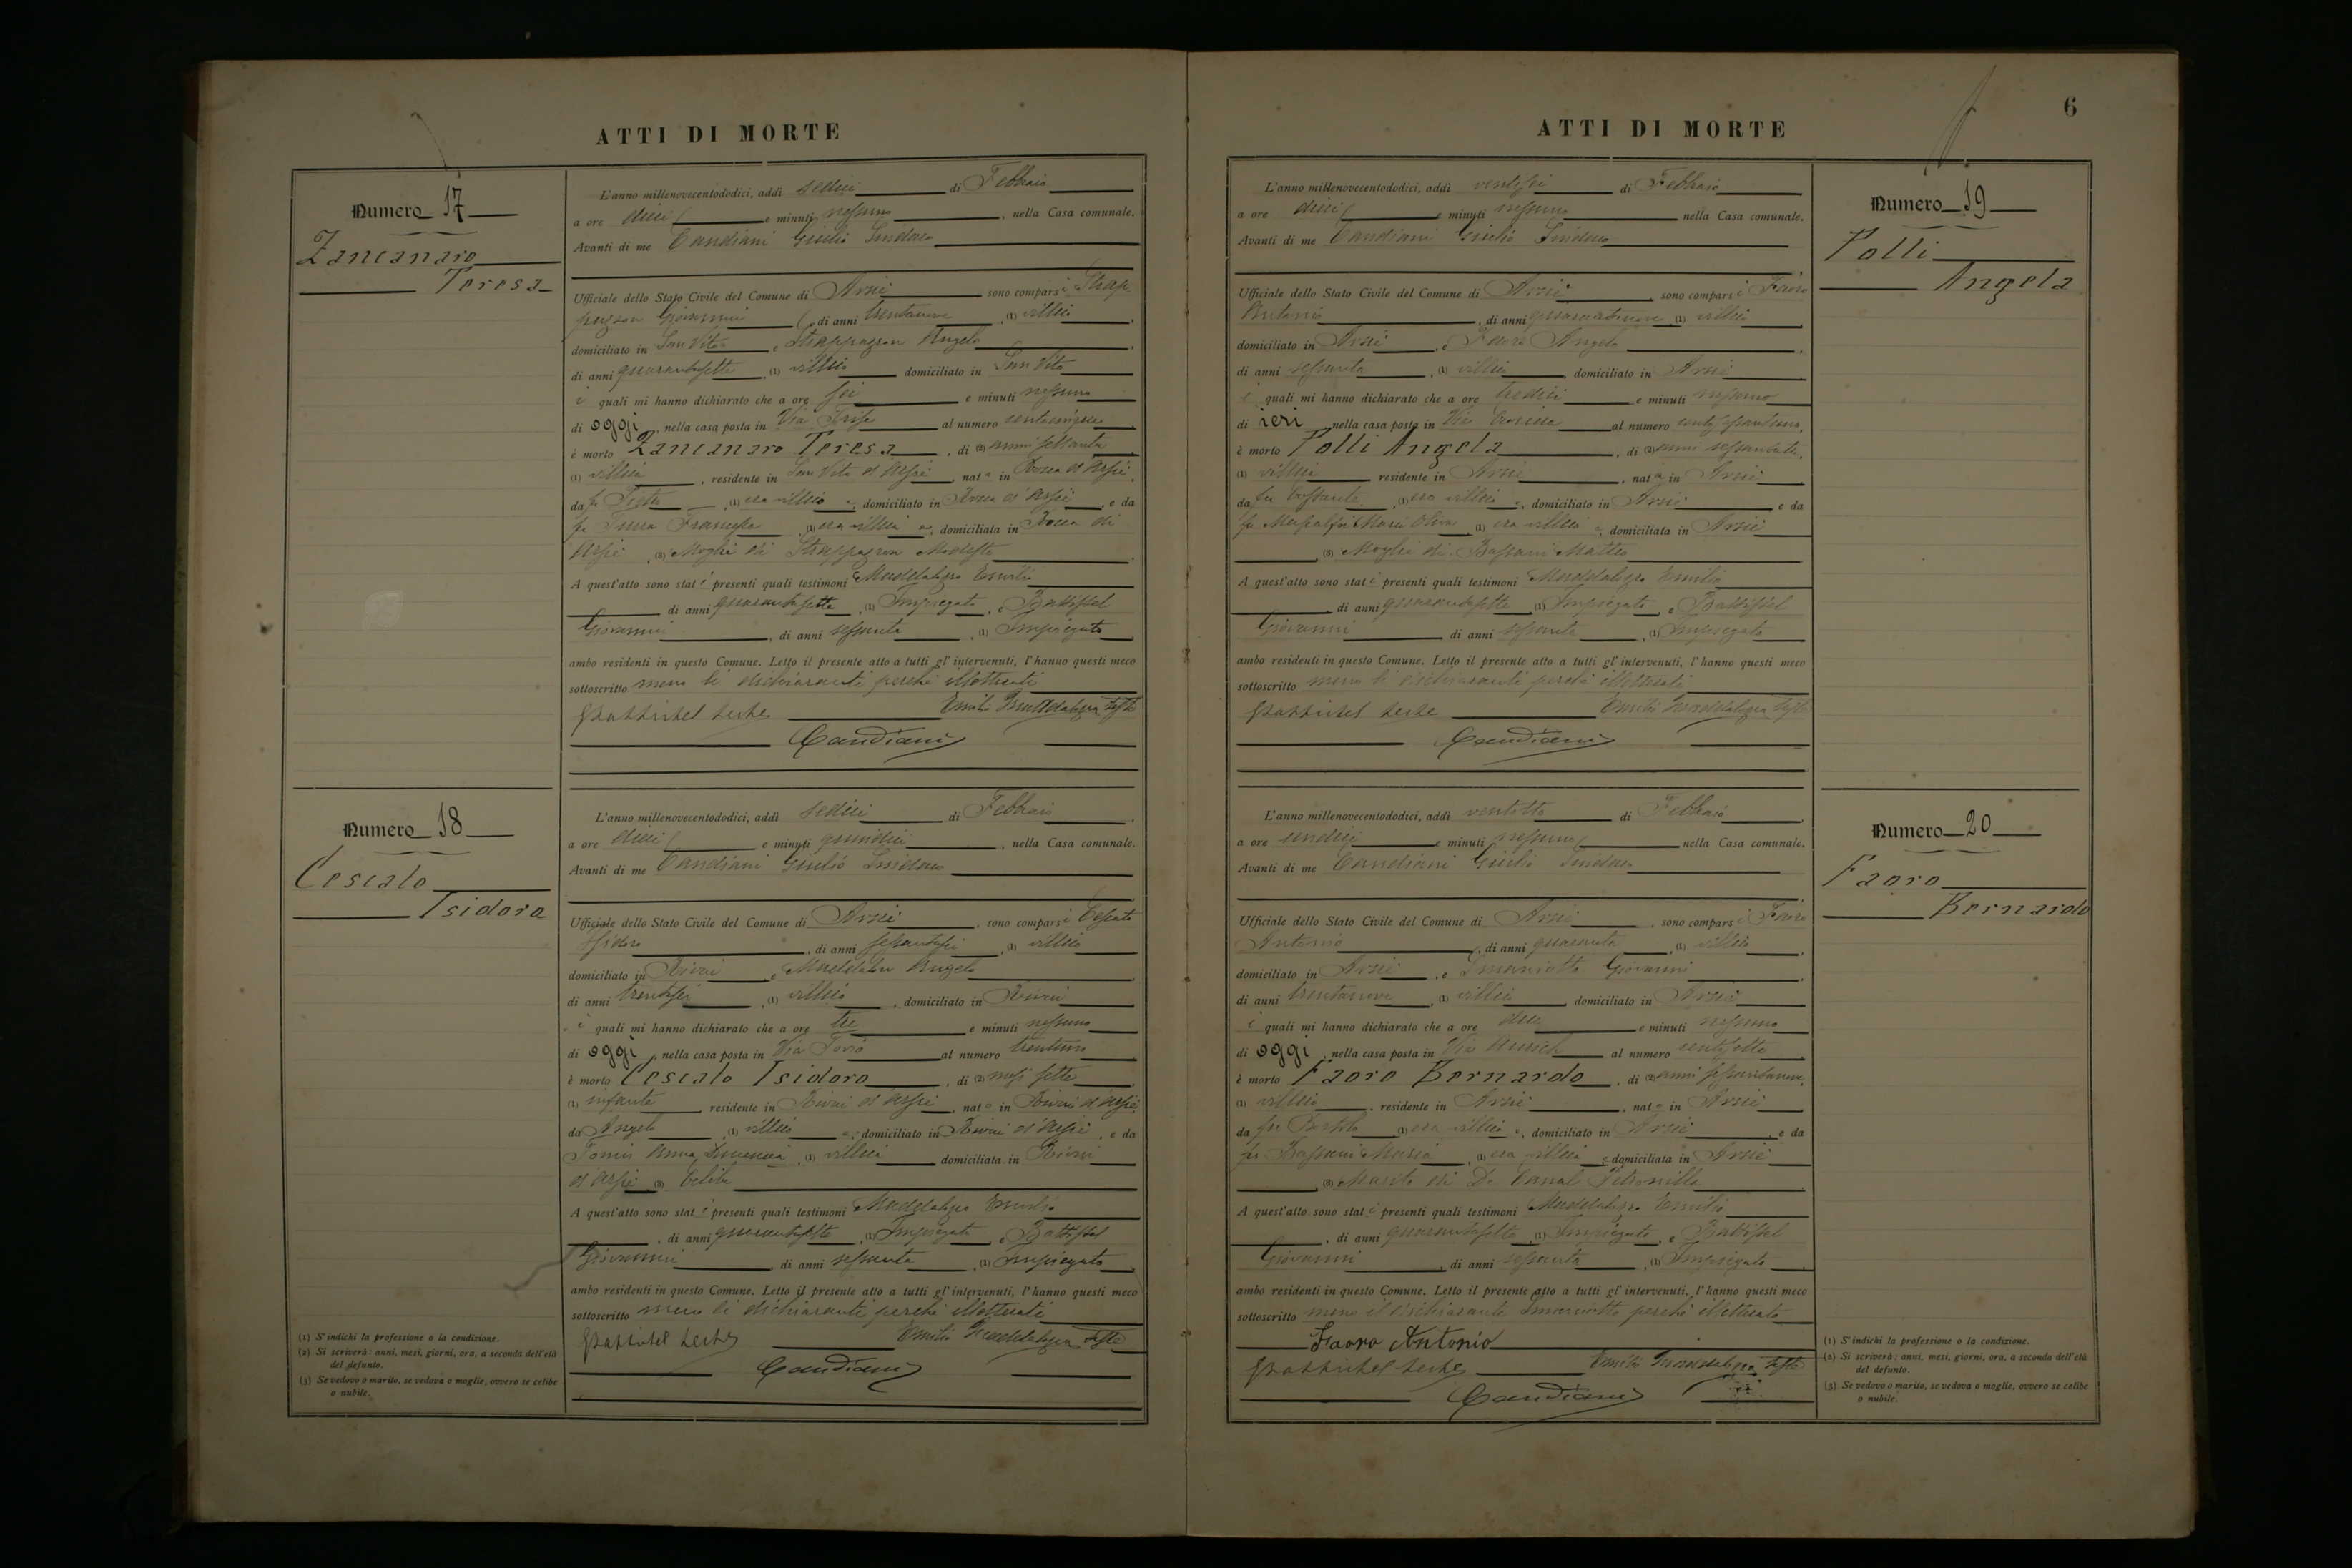 ATTI DI MORTE
Numero 17
Zancanaro
Teresa
L'anno millenovecentododici, addì sedici di Febbraio
a ore dieci e minuti nessuno, nella Casa comunale.
Avanti di me Candiani Giulio Sindaco
Ufficiale dello Stato Civile del Comune di Arsiè sono comparsi Strap
pazzon Giovanni, di anni trentanove, (1) villico,
domiciliato in San Vito e Strappazzon Angelo,
di anni quarantasette, (1) villico domiciliato in San Vito
i quali mi hanno dichiarato che a ore sei e minuti nessuno
di oggi, nella casa posta in Via al numero
è morto Zancanaro Teresa, di (2) anni settanta
(1) villica, residente in San Vito d'Arsiè, nata in Rocca d'Arsiè,
da fu, (1) era villico, domiciliato in Rocca d'Arsiè, e da
fu Francesca, (1) era villica, domiciliata in Rocca di
Arsiè, (3) Moglie di Strappazzon Modesto
A quest'atto sono stati presenti quali testimoni Maddalozzo Emilio
di anni quarantasette, (1) Impiegato, e Battistel
Giovanni, di anni sessanta, (1) Impiegato
ambo residenti in questo Comune. Letto il presente atto a tutti gl'intervenuti, l'hanno questi meco
sottoscritto meno li dichiaranti perché illetterati
GBattistel teste Emilio Maddalozzo teste
Candiani
Numero 18
Cescato
Isidoro
L'anno millenovecentododici, addì sedici di Febbraio,
a ore dieci e minuti quindici, nella Casa comunale.
Avanti di me Candiani Giulio Sindaco
Ufficiale dello Stato Civile del Comune di Arsiè, sono comparsi Cescato
Isidoro, di anni sessantasei, (1) villico,
domiciliato in Rivai e Angelo,
di anni trentasei, (1) villico, domiciliato in Rivai
i quali mi hanno dichiarato che a ore tre e minuti nessuno
di oggi, nella casa posta in Via al numero trentuno
è morto Cescato Isidoro, di (2) mesi sette,
(1) infante residente in Rivai d'Arsiè, nato in Rivai d'Arsiè,
da Angelo, (1) villico, domiciliato in Rivai d'Arsiè, e da
Anna, (1) villica domiciliata in Rivai
d'Arsiè (3) Celibe
A quest'atto sono stati presenti quali testimoni Maddalozzo Emilio
, di anni quarantasette, (1) Impiegato, e Battistel
Giovanni di anni sessanta, (1) Impiegato,
ambo residenti in questo Comune. Letto il presente atto a tutti gl'intervenuti, l'hanno questi meco
sottoscritto meno li dichiaranti perché illetterati
GBattistel teste Emilio Maddalozzo teste
Candiani
(1) S'indichi la professione o la condizione.
(2) Si scriverà: anni, mesi, giorni, ora, a seconda dell'età
del defunto.
(3) Se vedovo o marito, se vedova o moglie, ovvero se celibe
o nubile.
6
ATTI DI MORTE
Numero 19
Polli
Angela
L'anno millenovecentododici, addì ventisei di Febbraio
a ore dieci e minuti nessuno nella Casa comunale.
Avanti di me Candiani Giulio Sindaco
Ufficiale dello Stato Civile del Comune di Arsiè, sono comparsi Faoro
Antonio, di anni quarantanove (1) villico,
domiciliato in Arsiè, e Faoro Angelo,
di anni sessanta, (1) villico domiciliato in Arsiè
i quali mi hanno dichiarato che a ore tredici e minuti nessuno
di ieri, nella casa posta in Via al numero
è morto Polli Angela, di (2) anni
(1) villica residente in Arsiè, nata in Arsiè,
da fu, (1) era villico, domiciliato in Arsiè e da
fu Maria, (1) era villica, domiciliata in Arsiè
(3) Moglie di Bassani Matteo
A quest'atto sono stati presenti quali testimoni Maddalozzo Emilio
di anni quarantasette (1) Impiegato e Battistel
Giovanni di anni sessanta, (1) Impiegato
ambo residenti in questo Comune. Letto il presente atto a tutti gl'intervenuti, l'hanno questi meco
sottoscritto meno li dichiaranti perché illetterati
GBattistel teste Emilio Maddalozzo teste
Candiani
Numero 20
Faoro
Bernardo
L'anno millenovecentododici, addì ventotto di Febbraio,
a ore undici e minuti nessuno nella Casa comunale.
Avanti di me Candiani Giulio Sindaco
Ufficiale dello Stato Civile del Comune di Arsiè, sono comparsi Faoro
Antonio, di anni quaranta, (1) villico,
domiciliato in Arsiè, e Smaniotto Giovanni,
di anni trentanove, (1) villico domiciliato in Arsiè
i quali mi hanno dichiarato che a ore due e minuti nessuno
di oggi, nella casa posta in Via al numero
è morto Faoro Bernardo, di (2) anni sessantanove,
(1) villico, residente in Arsiè, nato in Arsiè,
da fu (1) era villico, domiciliato in Arsiè, e da
fu Bassani Maria, (1) era villica, domiciliata in Arsiè
(3) Marito di De Canal Petronilla
A quest'atto sono stati presenti quali testimoni Maddalozzo Emilio
, di anni quarantasette, (1) Impiegato, e Battistel
Giovanni, di anni sessanta, (1) Impiegato,
ambo residenti in questo Comune. Letto il presente atto a tutti gl'intervenuti, l'hanno questi meco
sottoscritto meno il dichiarante Smaniotto perché illetterato
Faoro Antonio
GBattistel teste Emilio Maddalozzo teste
Candiani
(1) S'indichi la professione o la condizione.
(2) Si scriverà: anni, mesi, giorni, ora, a seconda dell'età
del defunto.
(3) Se vedovo o marito, se vedova o moglie, ovvero se celibe
o nubile.